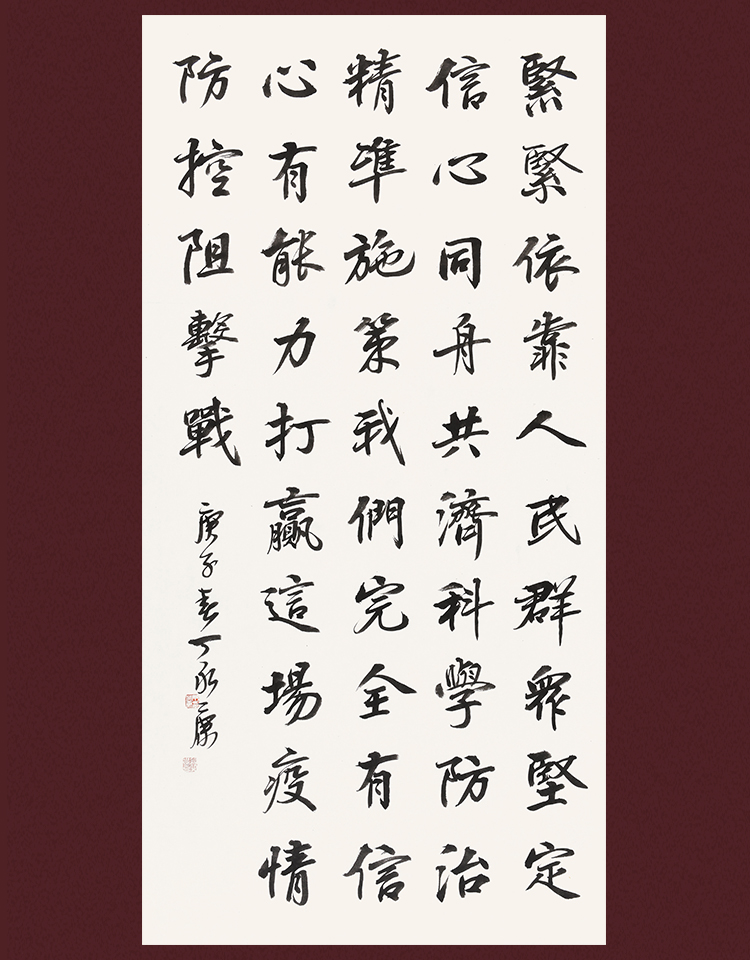 緊緊依靠人民群眾堅定
信心同舟共濟科學防治
精準施策我們完全有信
心有能力打贏這場疫情
防控阻擊戰
庚子春丁承康